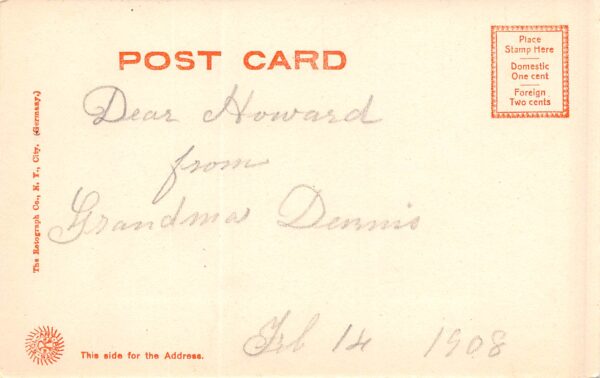 POST CARD
Place
Stamp Here
Domestic
One cent
Foreign
Two cents
Dear Howard
from
Grandma Dennis
Feb 14 1908
The Rotograph Co., N. Y., City. (Germany.)
This side for the Address.